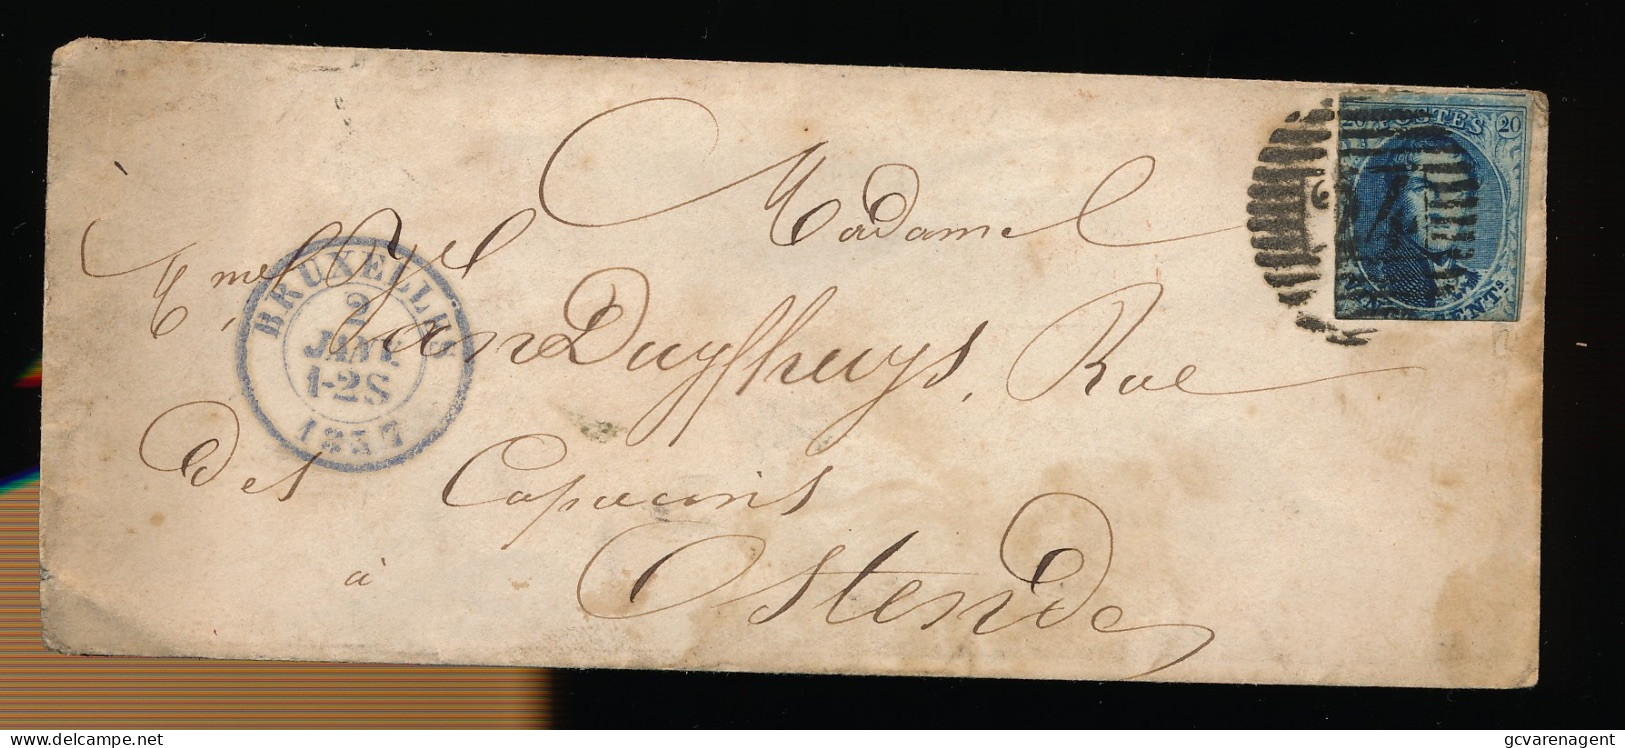 20 POSTES 20
24
CENTS.
Madame
Mme Yel
van Duyfhuys, Rue
des Capucins
à Ostende
BRUXELLES
2
JANV.
1-2S
1857
www.delcampe.net
gcvarenagent